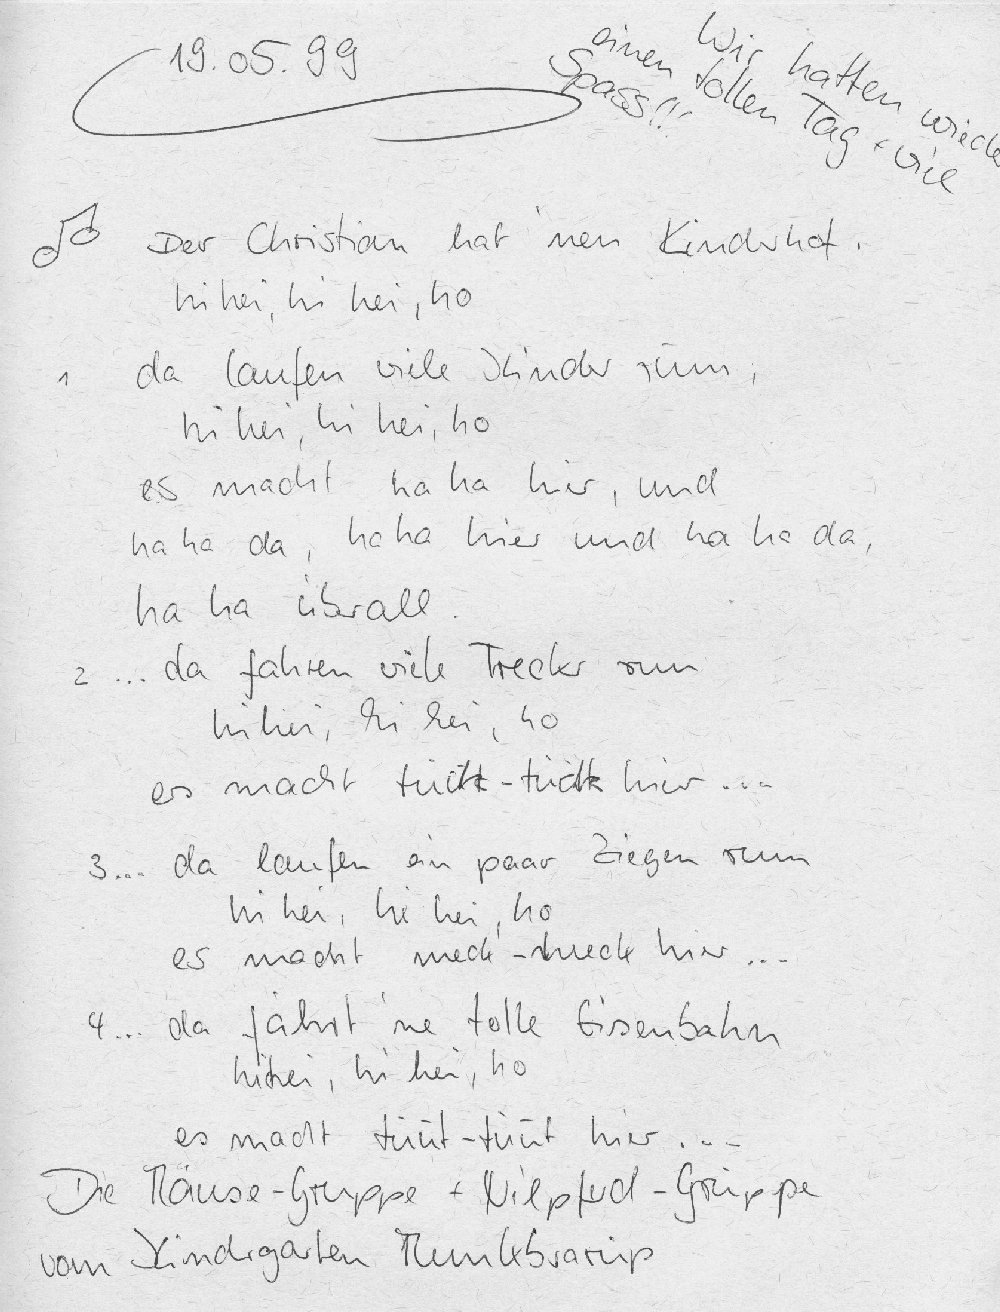 19.05.99
Wir hatten wieder
einen tollen Tag + viel
Spass!!
Der Christian hat 'nen Kinderhof.
hi hei, hi hei, ho
1 da laufen viele Kinder rum,
hi hei, hi hei, ho
es macht ha ha hier, und
ha ha da, haha hier und ha ha da,
ha ha überall.
2 ... da fahren viele Trecker rum
hi hei, hi hei, ho
es macht tuck-tuck hier ...
3... da laufen ein paar Ziegen rum
hi hei, hi hei, ho
es macht meck-meck hier ...
4... da fährt 'ne tolle Eisenbahn
hi hei, hi hei, ho
es macht tüüt-tüüt hier ...
Die Mäuse-Gruppe + Nilpferd-Gruppe
vom Kindergarten Munkbrarup